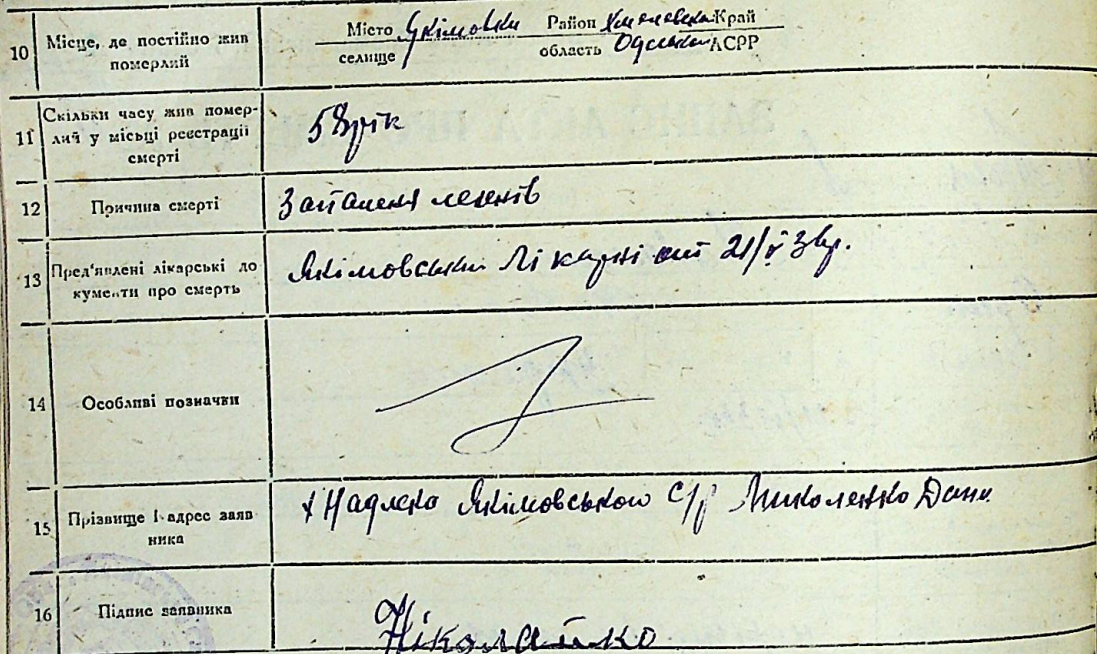 10 Місце, де постійно жив
померлий
Місто Якімовка Район Хмелевськ Край
селище область Одська АСРР
11 Скільки часу жив помер-
лий у місьці реєстрації
смерті
58 рік
12 Причина смерті
Запаленя легенів
13 Пред'явлені лікарські до
кументи про смерть
Якімовська Лікарні от 21/V 34р.
14 Особливі позначки
15 Прізвище і адрес заяв
ника
Якімовськой С/р Миколенко Дани
16 Підпис заявника
Ніколаенко